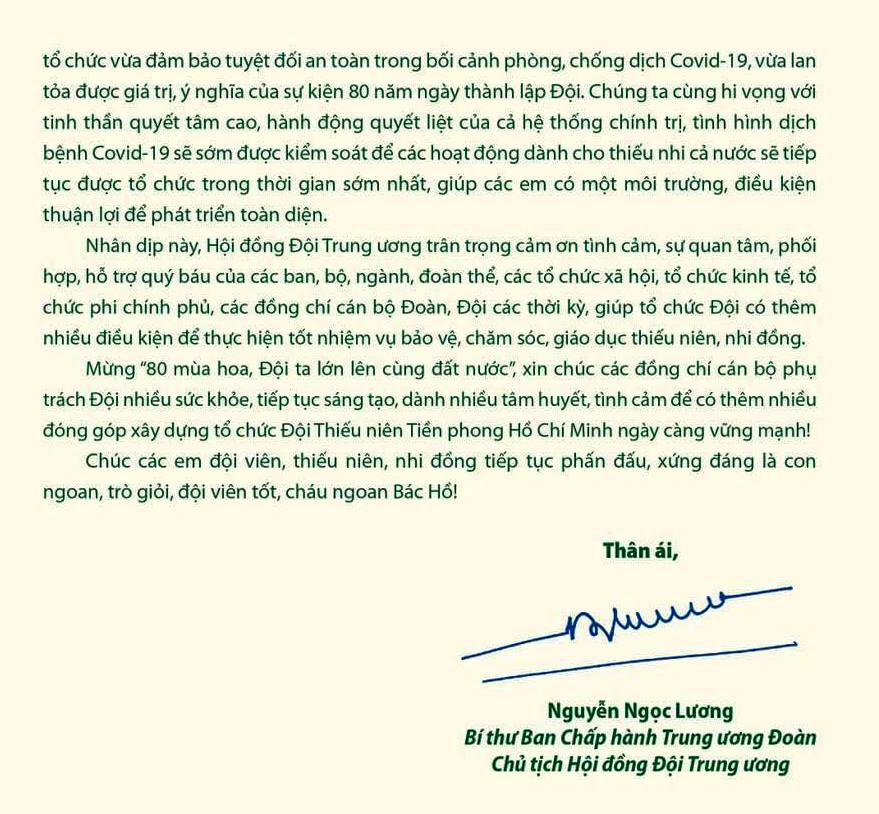 tổ chức vừa đảm bảo tuyệt đối an toàn trong bối cảnh phòng, chống dịch Covid-19, vừa lan
tỏa được giá trị, ý nghĩa của sự kiện 80 năm ngày thành lập Đội. Chúng ta cùng hi vọng với
tinh thần quyết tâm cao, hành động quyết liệt của cả hệ thống chính trị, tình hình dịch
bệnh Covid-19 sẽ sớm được kiểm soát để các hoạt động dành cho thiếu nhi cả nước sẽ tiếp
tục được tổ chức trong thời gian sớm nhất, giúp các em có một môi trường, điều kiện
thuận lợi để phát triển toàn diện.
Nhân dịp này, Hội đồng Đội Trung ương trân trọng cảm ơn tình cảm, sự quan tâm, phối
hợp, hỗ trợ quý báu của các ban, bộ, ngành, đoàn thể, các tổ chức xã hội, tổ chức kinh tế, tổ
chức phi chính phủ, các đồng chí cán bộ Đoàn, Đội các thời kỳ, giúp tổ chức Đội có thêm
nhiều điều kiện để thực hiện tốt nhiệm vụ bảo vệ, chăm sóc, giáo dục thiếu niên, nhi đồng.
Mừng “80 mùa hoa, Đội ta lớn lên cùng đất nước”, xin chúc các đồng chí cán bộ phụ
trách Đội nhiều sức khỏe, tiếp tục sáng tạo, dành nhiều tâm huyết, tình cảm để có thêm nhiều
đóng góp xây dựng tổ chức Đội Thiếu niên Tiền phong Hồ Chí Minh ngày càng vững mạnh!
Chúc các em đội viên, thiếu niên, nhi đồng tiếp tục phấn đấu, xứng đáng là con
ngoan, trò giỏi, đội viên tốt, cháu ngoan Bác Hồ!
Thân ái,
Nguyễn Ngọc Lương
Bí thư Ban Chấp hành Trung ương Đoàn
Chủ tịch Hội đồng Đội Trung ương